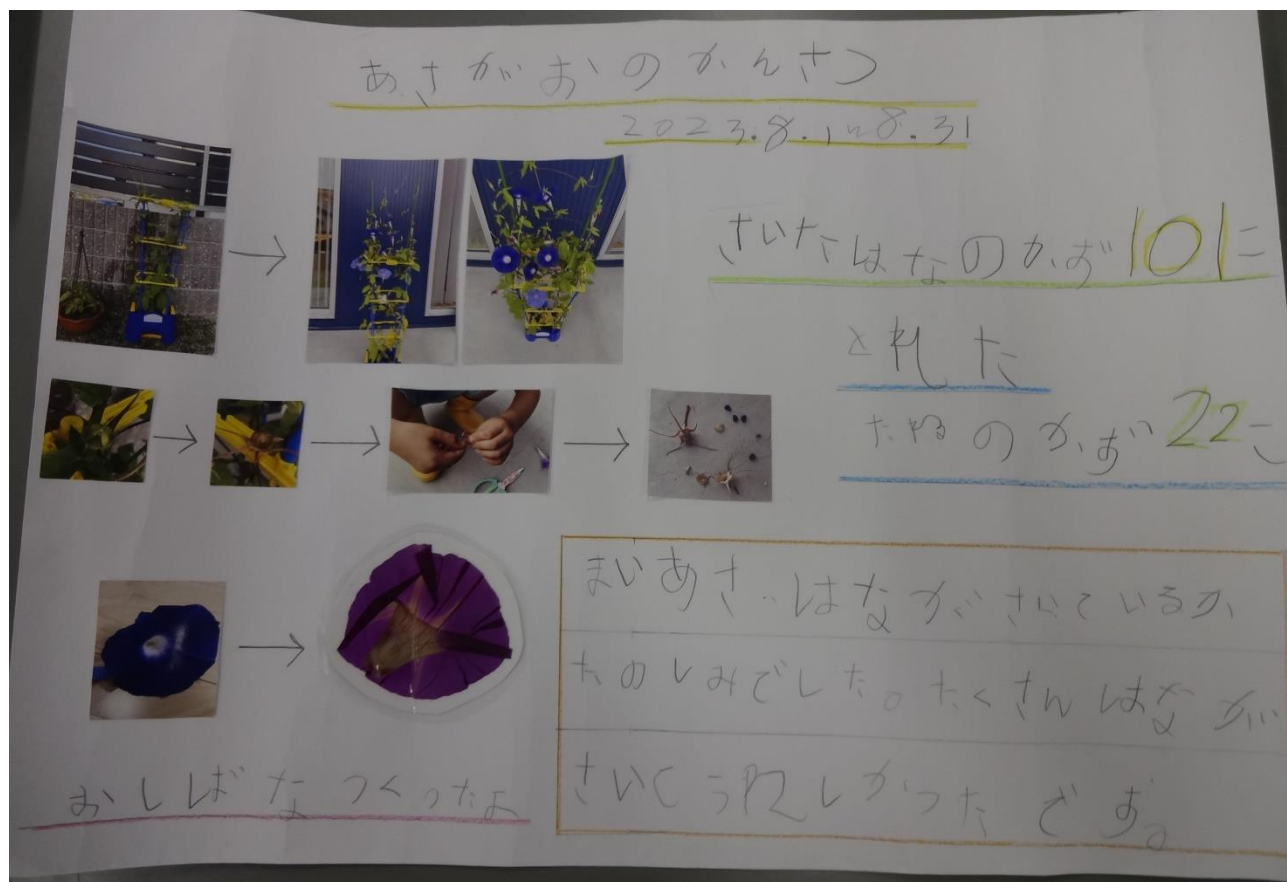 あさがおのかんさつ
2023.8.1~8.31
さいたはなのかず101こ
とれた
たねのかず22こ
まいあさ、はながさいているか
たのしみでした。たくさんはなが
さいてうれしかったです。
おしばなつくったよ